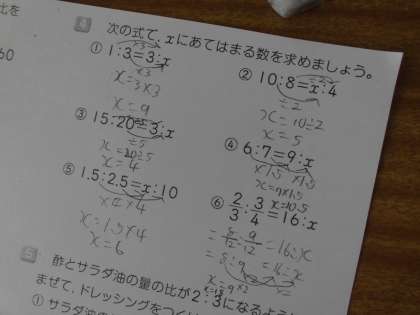 比を
60
4 次の式で、xにあてはまる数を求めましょう。
① 1:3=3:x
×3
×3
x=3×3
x=9
② 10:8=x:4
÷2
÷2
x=10÷2
x=5
③ 15:20=3:x
÷5
x=20÷5
x=4
④ 6:7=9:x
×1.5 ×1.5
x=7×1.5
x=10.5
⑤ 1.5:2.5=x:10
×4 ×4
x=1.5×4
x=6
⑥ 2/3:3/4=16:x
=8/12:9/12=16:x
=8:9=16:x
x=9×2
x=18
5 酢とサラダ油の量の比が2:3になるように
まぜて、ドレッシングを
① サラダ油の